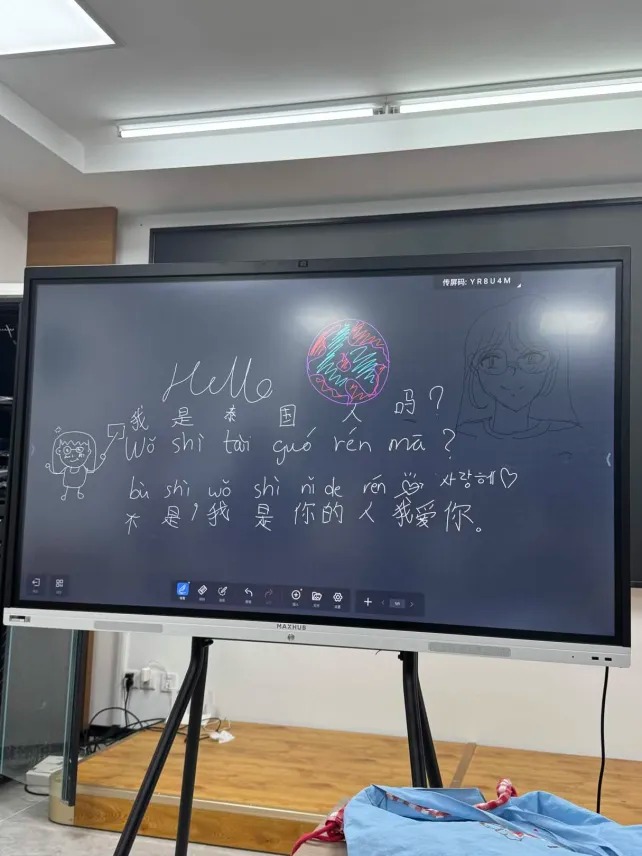 传屏码: YR8U4M
Hello
我 是 泰 国 人 吗?
Wǒ shì tài guó rén mā?
bù shì wǒ shì nǐ de rén 사랑해♡
不是,我是你的人我愛你。
MAXHUB